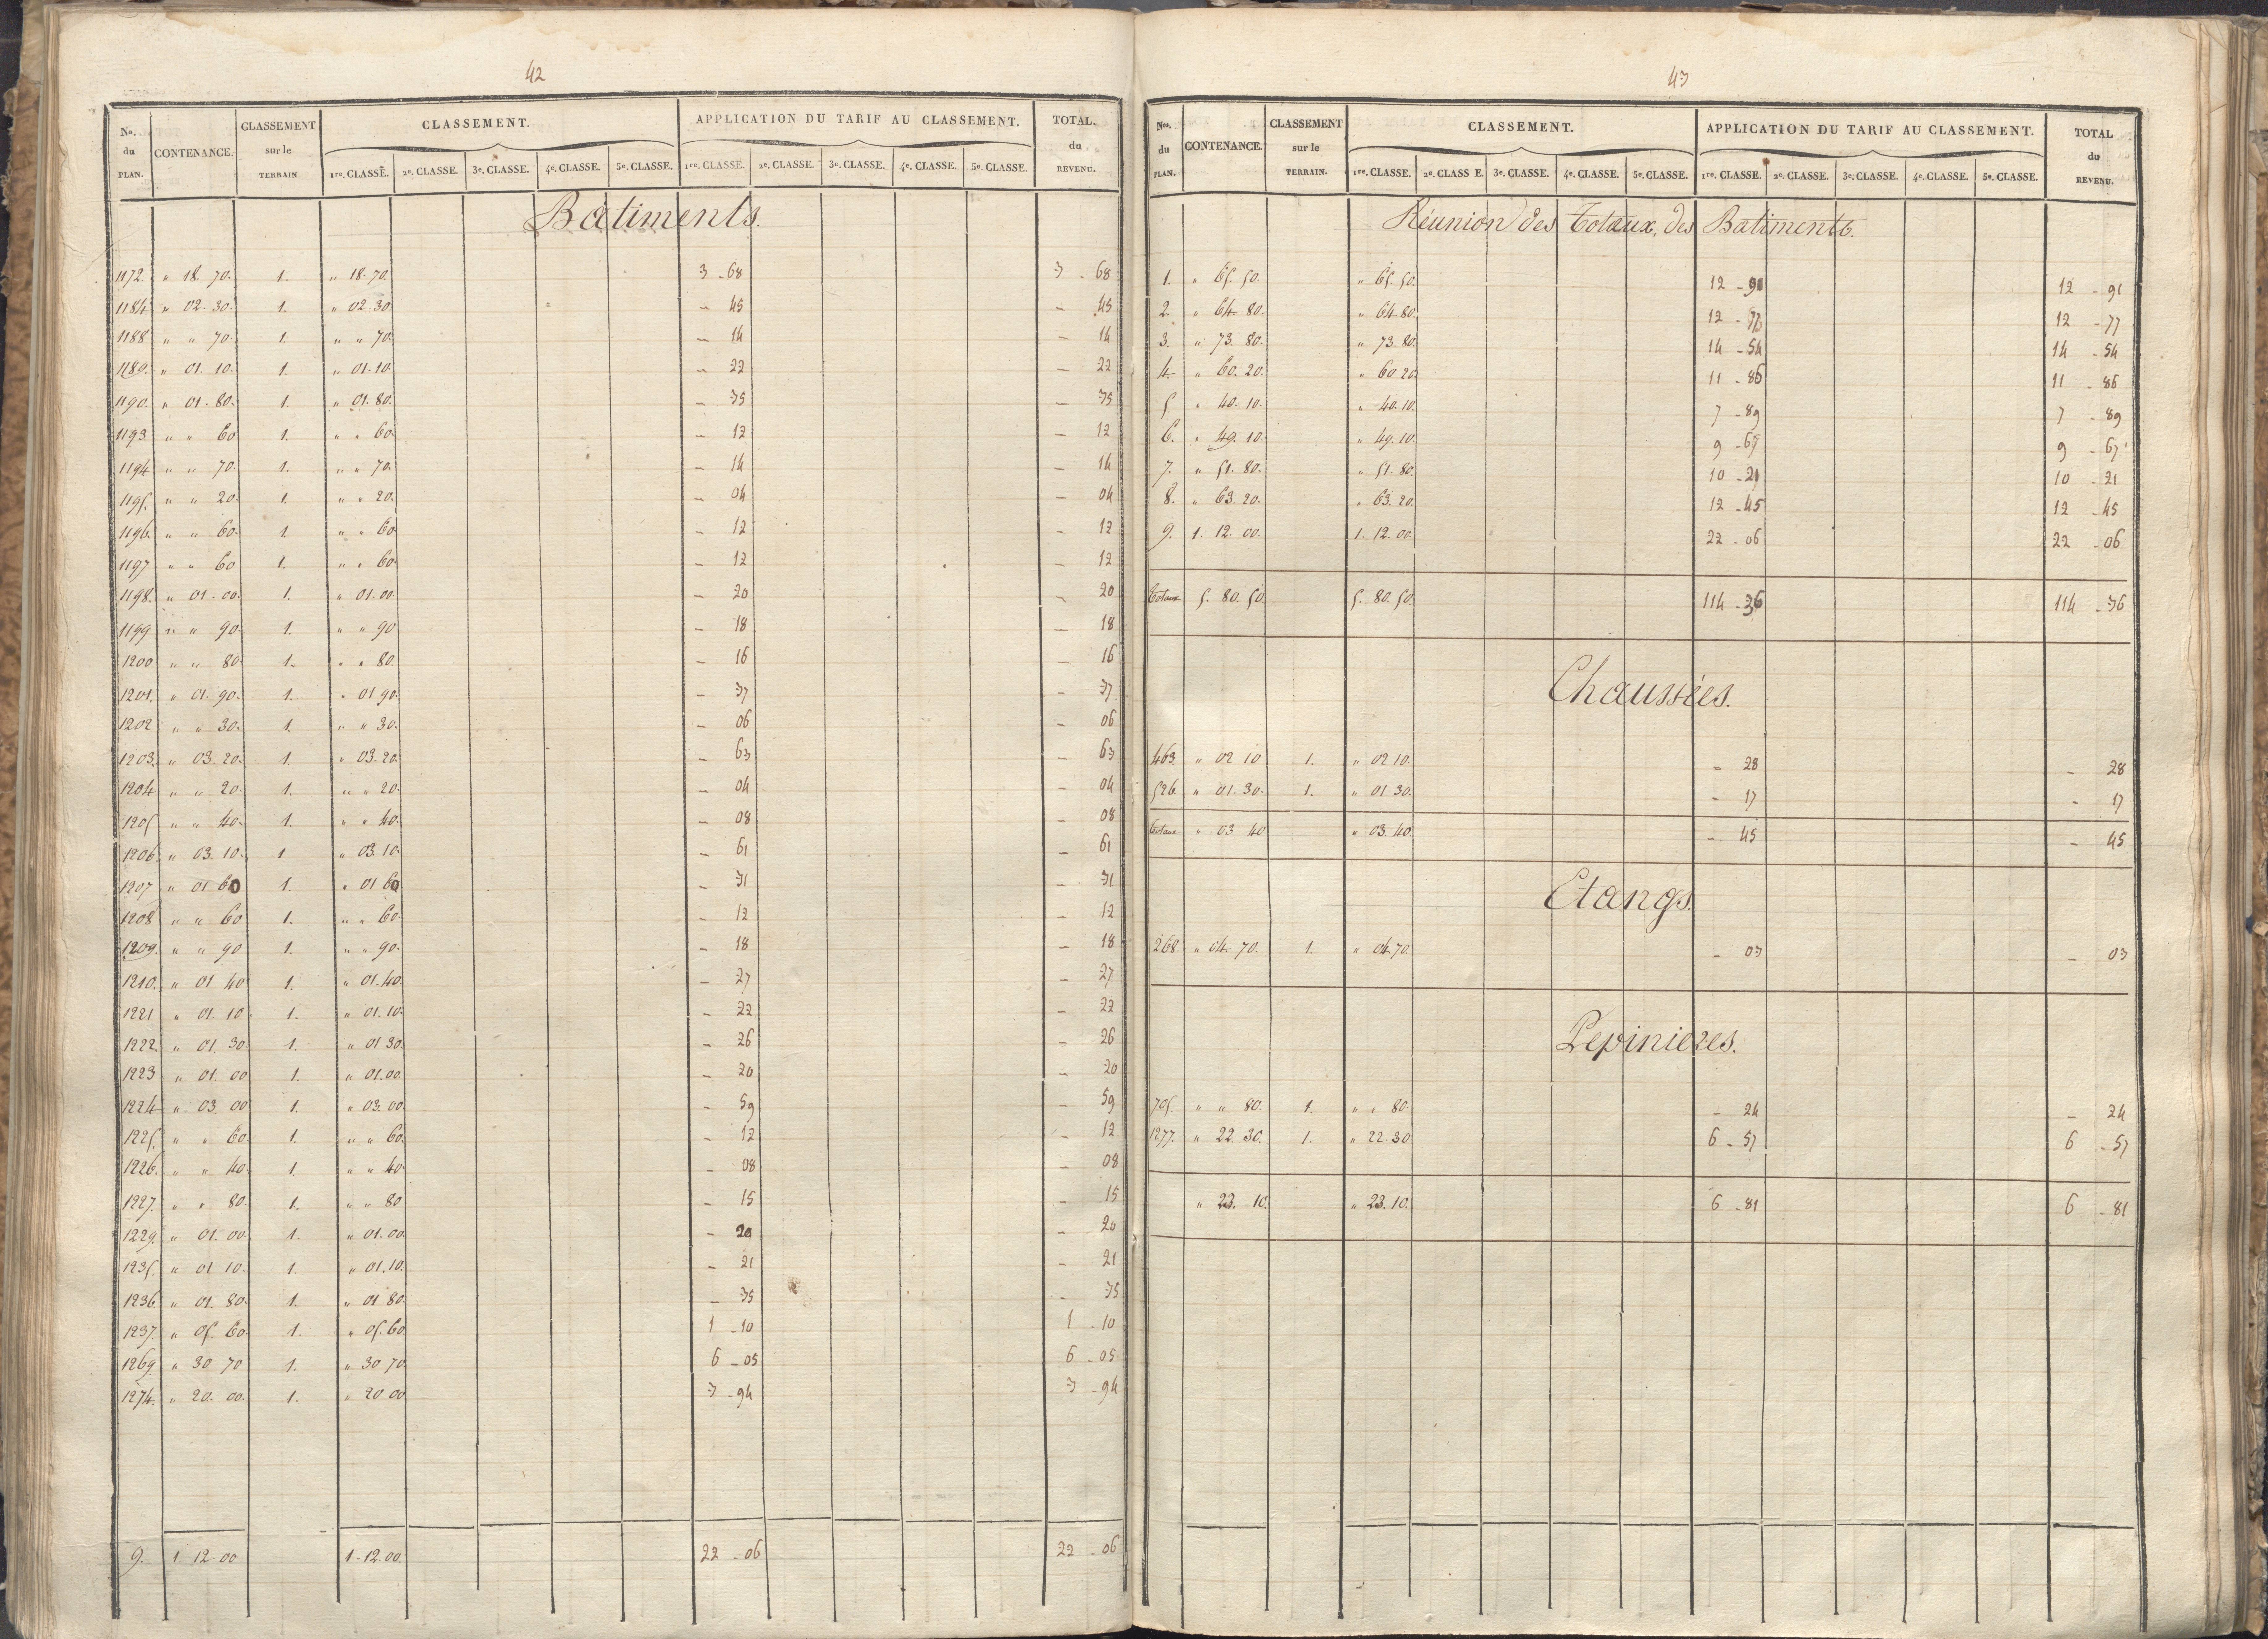 42
No. du PLAN. CONTENANCE. CLASSEMENT sur le TERRAIN CLASSEMENT. APPLICATION DU TARIF AU CLASSEMENT. TOTAL. du REVENU.
1re. CLASSE. 2e. CLASSE. 3e. CLASSE. 4e. CLASSE. 5e. CLASSE. 1re. CLASSE. 2e. CLASSE. 3e. CLASSE. 4e. CLASSE. 5e. CLASSE.
Batiments.
1172. " 18. 70. 1. " 18. 70. 3 - 68 3 - 68
1184. " 02. 30. 1. " 02. 30. - 45 - 45
1188 " " 70. 1. " " 70. - 14 - 14
1189. " 01. 10. 1. " 01. 10. - 22 - 22
1190. " 01. 80. 1. " 01. 80. - 35 - 35
1193 " " 60 1. " " 60. - 12 - 12
1194 " " 70. 1. " " 70. - 14 - 14
1195. " " 20. 1. " " 20. - 04 - 04
1196. " " 60. 1. " " 60 - 12 - 12
1197 " " 60 1. " " 60. - 12 - 12
1198. " 01. 00. 1. " 01. 00. - 20 - 20
1199 " " 90. 1. " " 90 - 18 - 18
1200 " " 80. 1. " " 80. - 16 - 16
1201. " 01. 90. 1. " 01 90. - 37 - 37
1202 " " 30. 1. " " 30. - 06 - 06
1203. " 03. 20. 1. " 03. 20. - 63 - 63
1204 " " 20. 1. " " 20. - 04 - 04
1205 " " 40. 1. " " 40. - 08 - 08
1206. " 03. 10. 1 " 03. 10. - 61 - 61
1207 " 01 60 1. " 01 60 - 31 - 31
1208 " " 60 1. " " 60. - 12 - 12
1209. " " 90 1. " " 90. - 18 - 18
1210. " 01 40 1. " 01. 40. - 27 - 27
1221 " 01. 10 1. " 01. 10. - 22 - 22
1222. " 01. 30. 1. " 01 30. - 26 - 26
1223 " 01. 00 1. " 01. 00. - 20 - 20
1224 " 03 00 1. " 03. 00. - 59 - 59
1225. " " 60. 1. " " 60. - 12 - 12
1226. " " 40. 1. " " 40. - 08 - 08
1227. " " 80. 1. " " 80 - 15 - 15
1229. " 01. 00. 1. " 01. 00. - 20 - 20
1235. " 01 10. 1. " 01. 10. - 21 - 21
1236. " 01. 80. 1. " 01 80. - 35 - 35
1237. " 05. 60. 1. " 05. 60. 1 - 10 1 - 10
1269. " 30 70 1. " 30 70 6 - 05 6 - 05
1274. " 20. 00. 1. " 20 00 3 - 94 3 - 94
9. 1 12 00 1. 12. 00. 22 - 06 22 - 06
43
Nos. du PLAN. CONTENANCE. CLASSEMENT sur le TERRAIN. CLASSEMENT. APPLICATION DU TARIF AU CLASSEMENT. TOTAL du REVENU.
1re. CLASSE. 2e. CLASS E. 3e. CLASSE. 4e. CLASSE. 5e. CLASSE. 1re. CLASSE. 2e. CLASSE. 3e. CLASSE. 4e. CLASSE. 5e. CLASSE.
Réunion des Totaux, des Batiments.
1. " 65. 50. " 65. 50. 12 - 91 12 - 91
2. " 64. 80. " 64. 80. 12 - 77 12 - 77
3. " 73. 80. " 73. 80. 14 - 54 14 - 54
4. " 60. 20. " 60 20. 11 - 86 11 - 86
5. " 40. 10. " 40. 10. 7 - 89 7 - 89
6. " 49. 10. " 49. 10. 9 - 67 9 - 67
7. " 51. 80. " 51. 80. 10 - 21 10 - 21
8. " 63. 20. " 63. 20. 12 - 45 12 - 45
9. 1. 12. 00. 1. 12. 00. 22 - 06 22 - 06
Totaux 5. 80. 50. 5. 80. 50. 114 - 36 114 - 36
Chaussées.
463. " 02 10 1. " 02 10. - 28 - 28
526. " 01. 30. 1. " 01 30. - 17 - 17
Totaux " 03 40 " 03. 40. - 45 - 45
Etangs.
268. " 04. 70. 1. " 04. 70. - 03 - 03
Pepinieres.
705. " " 80. 1. " " 80. - 24 - 24
1277. " 22. 30. 1. " 22. 30 6 - 57 6 - 57
" 23. 10. " 23. 10. 6 - 81 6 - 81